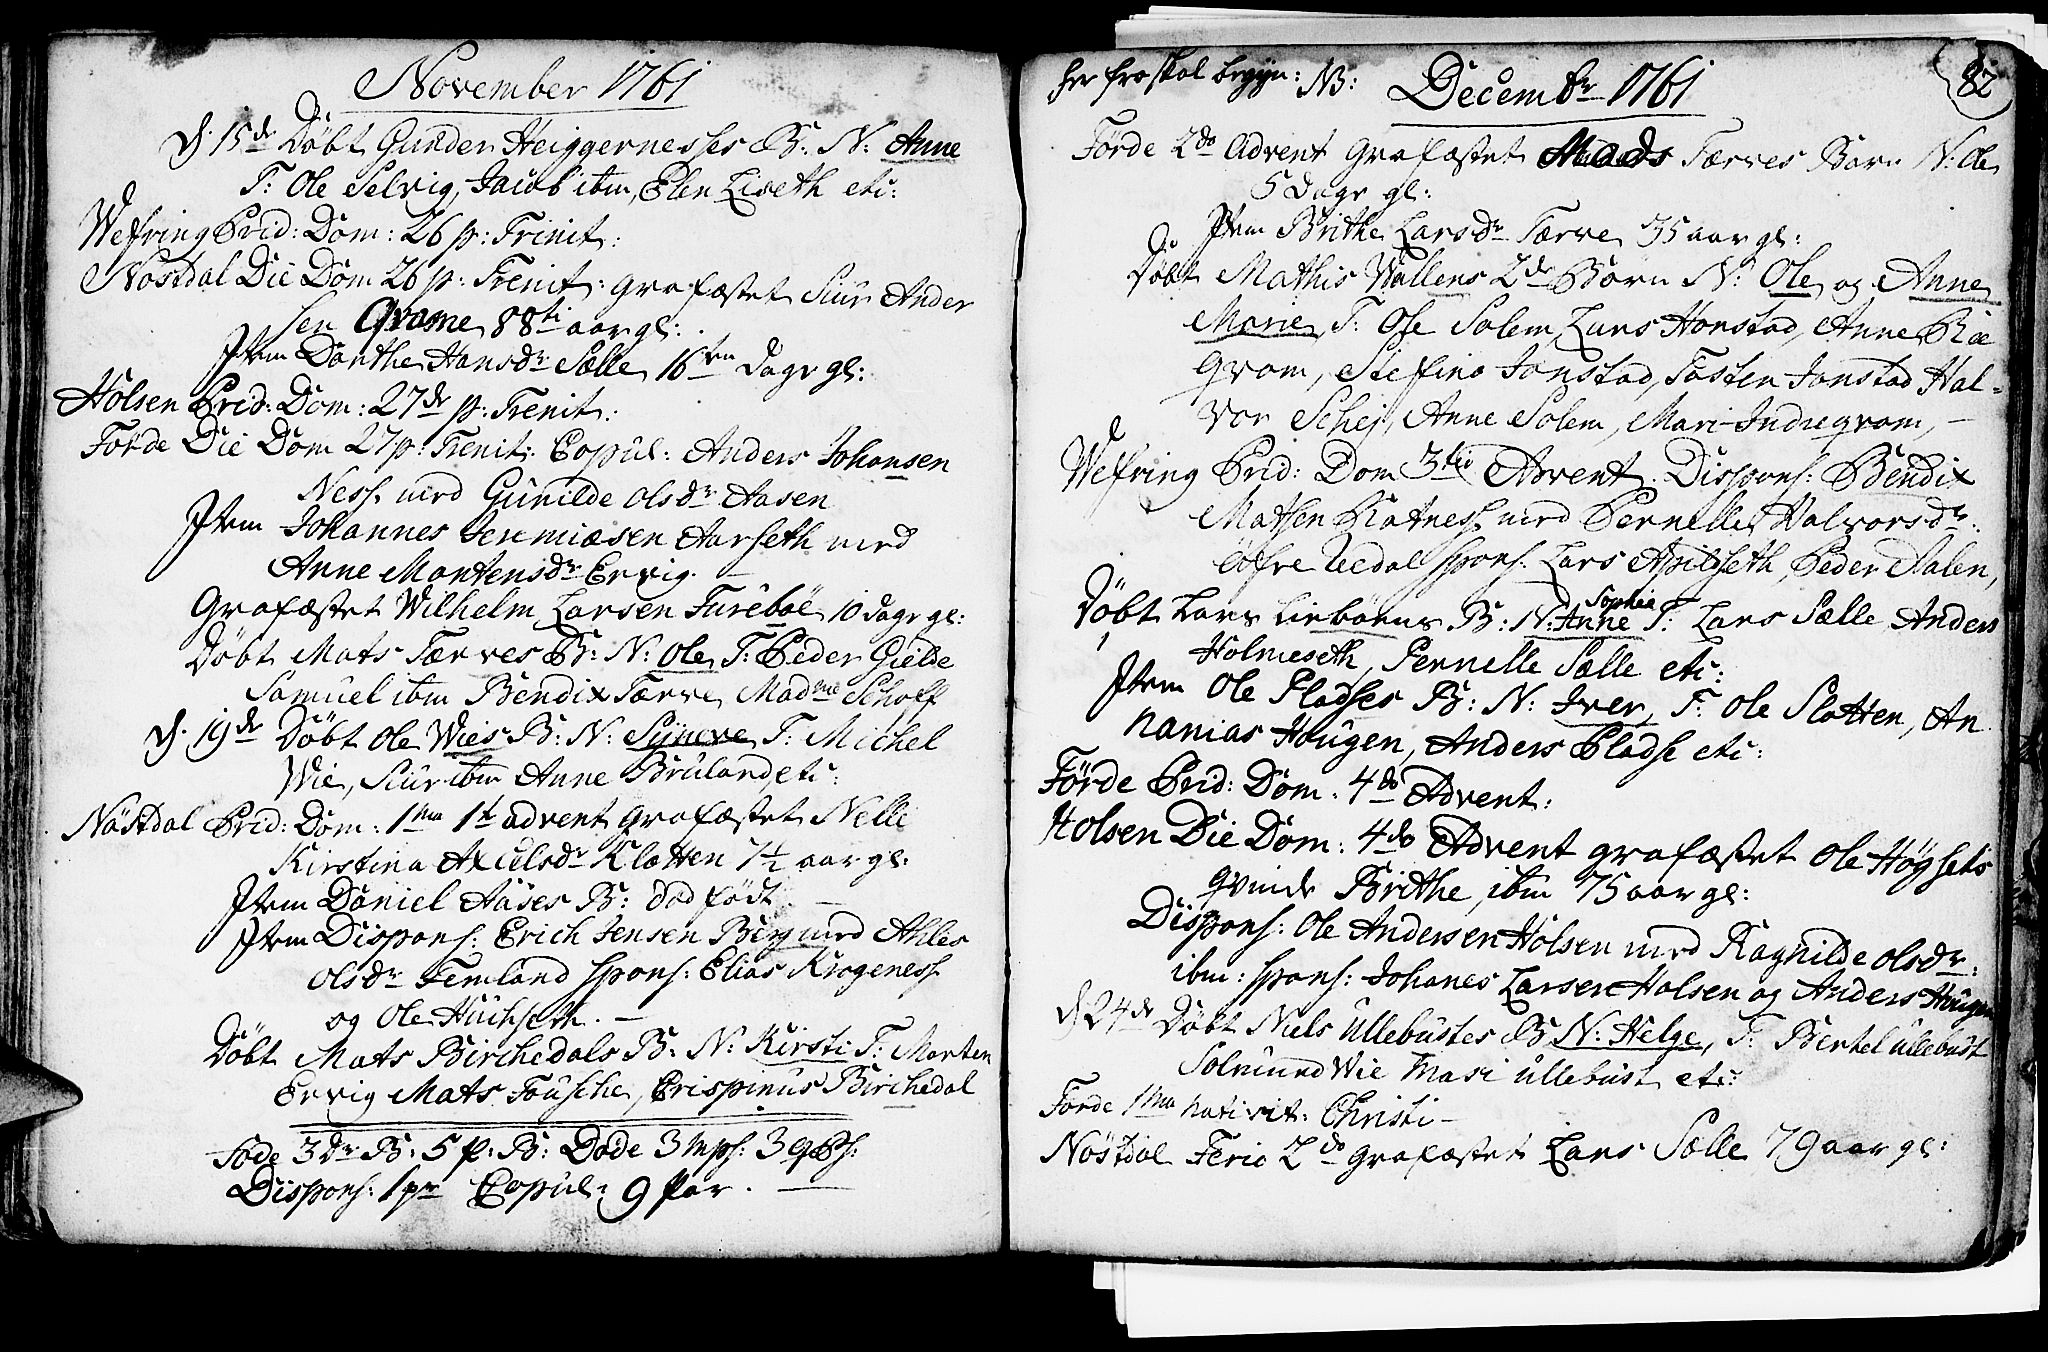 November 1761
d. 15de Döbt Gunder Heiggernesses B: N: Anne
T: Ole Selvig, Jacob ibm, Elen Liseth etc:
Wefring Prid: Dom: 26 p: Trinit:
Nöstdal Die Dom 26 p: Trenit: grafæstet Siur Ander
sen Qvame 88ti aar gl:
Item Dorthe Hansdr Sælle 16ten Dage gl:
Holsen Prid: Dom: 27de p: Trenit:
Förde Die Dom 27 p: Trenit: Copul: Anders Johansen
Ness med Gunilde olsdr Aasen
Item Johannes Jeremiæsen Aarseth med
Anne Mortensdr Ervig. —
Grafæstet Wilhelm Larsen Fureböe 10 dage gl:
Döbt Mats Færves B: N: Ole T: Peder Gielde
Samuel ibm Bendix Færve Madme Schoff
d. 19de Döbt Ole Wies B: N: Syneve T: Michel
Wie, Siur ibm Anne Bruland, etc:
Nöstdal Prid: Dom: 1ma 1t advent grafæstet Nelle
Kirstina Axelsdr Klotten 7½ aar gl:
Item Daniel Aases B: död födt. —
Item Dispons: Erich Jensen Berg med Ahlis
olsdr Femland spons: Elias Krogeness
og Ole —
Döbt Mats Birchedals B: N: Kirsti T: Morten
Ervig Mats Fousche, Crispinus Birchedal
Föde 3 dr B: 5 p: B: Döde 3 mps: 3 qps:
Dispons: 1 pr Copul: 9 Par. —
her fra skal begyn: NB: Decembr 1761
82
Förde 2do Advent grafæstet Mads Færves Barn N: Ole
5 dage gl:
Item Brithe Larsdr Færve 35 aar gl:
Döbt Mathis Hallens 2de Börn N: Ole og Anne
Marie, T: Ole Solem, Lars Honstad, Anne Ræ
gvam, Steffina Jonstad, Tosten Jonstad Hal-
vor Schej, Anne Solem, Mari Indregvam, —
Wefring Prid: Dom 3tie Advent. Dispons: Bendix
Matsen Ratness med Pernelle Halvorsdr:
öfre Uedal spons. Lars Apildseth Peder Aalen,
Döbt Lars Lieböens B: N: Anne Sophia T: Lars Sælle Anders
Holmeseth, Pernelle Sælle etc:
Item Ole Pladses B: N: Iver, T: Ole Slotten, An
nanias Hougen, Anders Pladse etc:
Förde Prid: Dom. 4do Advent:
Holsen Die Dom: 4do Advent grafæstet Ole Högsets
qvinde Brithe, ibm 75 aar gl:
Dispons: Ole Andersen Holsen med Ragnilde olsdr:
ibm: spons: Johanes Larsen Holsen og Anders Hougen
d. 24de Döbt Niels Ullebustes B N: Helge, T: Bertel Ullebust
Solmund Wie Masi ullebust etc:
Förde 1ma nativit: Christi —
Nöstdal Feria 2do grafæstet Lars Sælle 79 aar gl: